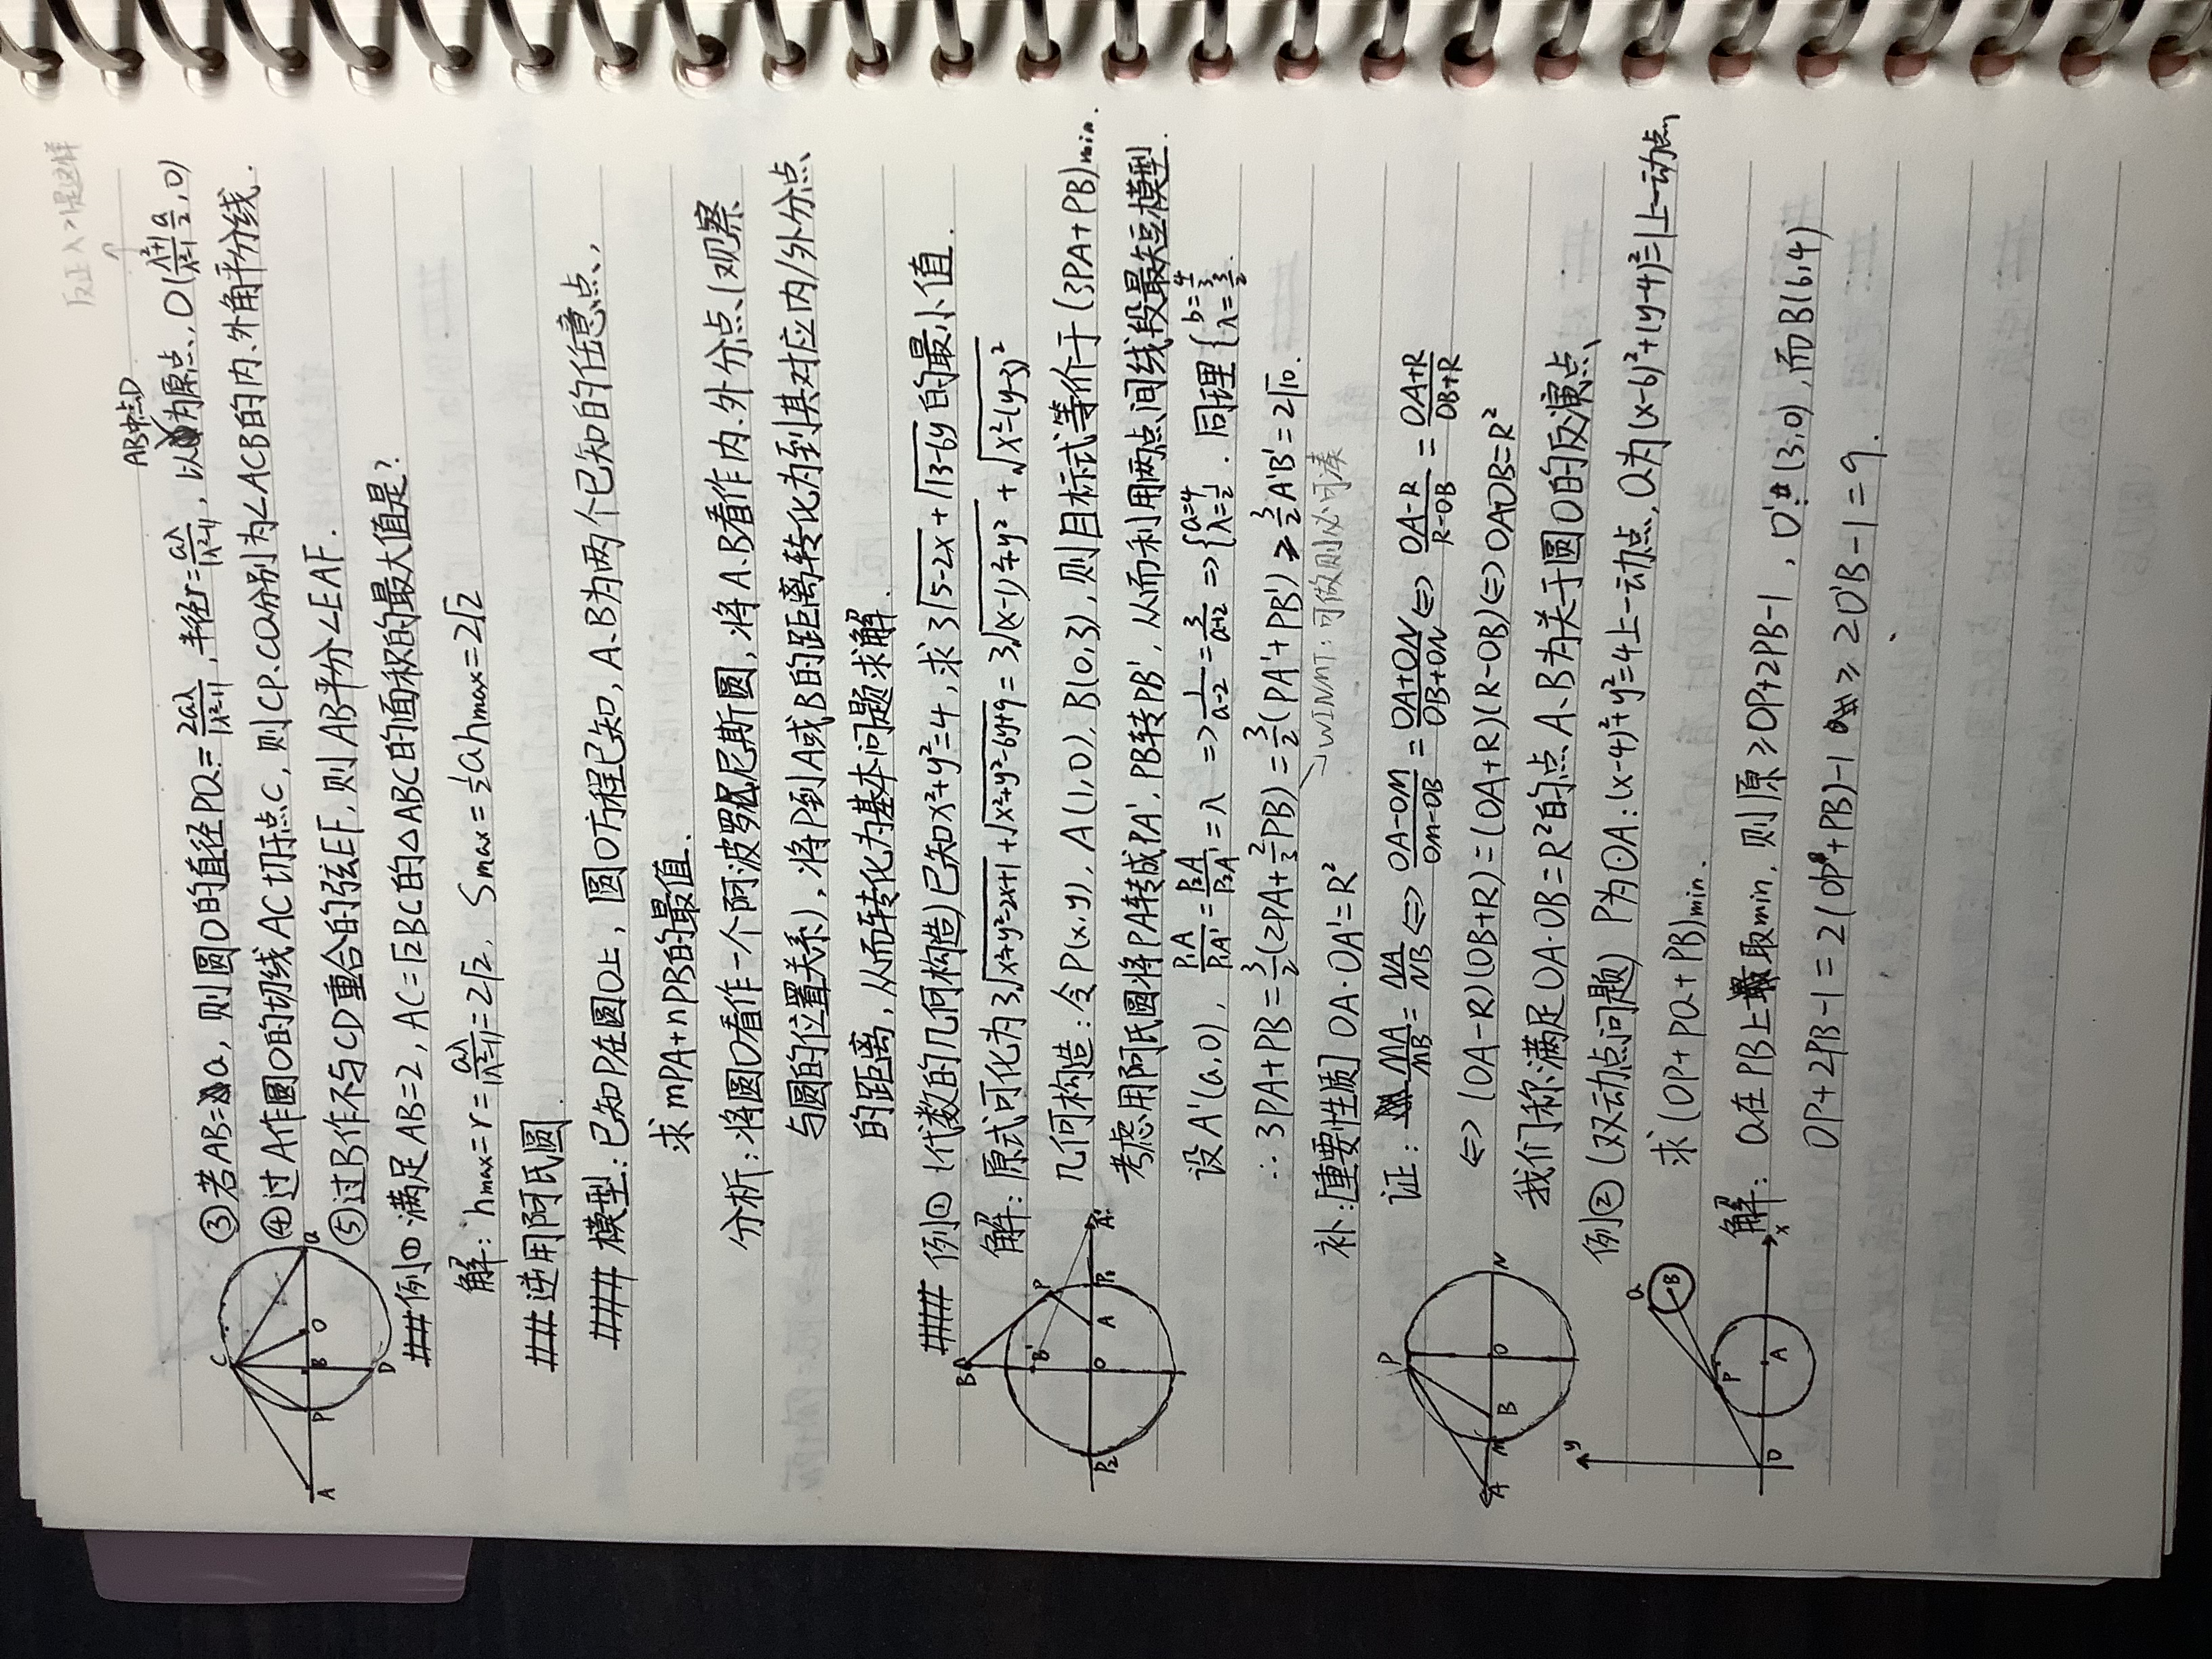 反正λ>1是这样
AB中点D
③若AB=a，则圆O的直径PQ=\frac{2aλ}{|λ²-1|}，半径r=\frac{aλ}{|λ²-1|}，以为原点，O(\frac{λ²+1}{λ²-1}\frac{a}{2},0)
④过A作圆O的切线AC切于点C，则CP、CQ分别为∠ACB的内、外角平分线.
⑤过B作不与CD重合的弦EF，则AB平分∠EAF.
###例① 满足AB=2，AC=√2BC的△ABC的面积的最大值是?
解：hmax=r=\frac{aλ}{|λ²-1|}=2√2，Smax=\frac{1}{2}ahmax=2√2
## 逆用阿氏圆
### 模型：已知P在圆O上，圆O方程已知，A、B为两个已知的任意点，
求mPA+nPB的最值.
分析：将圆O看作一个阿波罗尼斯圆，将A、B看作内、外分点(观察
与圆的位置关系)，将P到A或B的距离转化为到其对应内/外分点
的距离，从而转化为基本问题求解.
### 例① (代数的几何构造)已知x²+y²=4，求3√5-2x+√13-6y的最小值.
解：原式可化为3√x²+y²-2x+1+√x²+y²-6y+9=3√(x-1)²+y²+√x²-(y-3)²
几何构造：令P(x,y)，A(1,0)，B(0,3)，则目标式等价于(3PA+PB)min.
考虑用阿氏圆将PA转成PA'，PB转PB'，从而利用两点间线段最短模型
设A'(a,0)，\frac{P₁A}{P₁A'}=\frac{P₂A}{P₂A'}=λ => \frac{1}{a-2}=\frac{3}{a+2} => {a=4 λ=\frac{1}{2}. 同理{b=\frac{4}{3} λ=\frac{3}{2}.
∴3PA+PB=\frac{3}{2}(2PA+\frac{2}{3}PB)=\frac{3}{2}(PA'+PB')≥\frac{3}{2}A'B'=2√10.
→WINMT：可做则必可凑
补：[重要性质] OA·OA'=R²
证：\frac{MA}{MB}=\frac{NA}{NB}⇔\frac{OA-OM}{OM-OB}=\frac{OA+ON}{OB+ON}⇔\frac{OA-R}{R-OB}=\frac{OA+R}{OB+R}
⇔(OA-R)(OB+R)=(OA+R)(R-OB)⇔OA·OB=R²
我们称满足OA·OB=R²的点A、B为关于圆O的反演点
例② (双动点问题)P为⊙A：(x-4)²+y²=4上一动点，Q为(x-6)²+(y-4)²=1上一动点，
求(OP+PQ+PB)min.
解：Q在PB上取min，则原≥OP+2PB-1，O':(3,0)，而B(6,4)
OP+2PB-1=2(O'P+PB)-1≥2O'B-1=9.
C
A
P
B
O
Q
D
B
B'
P
P₂
O
A
P₁
A'
P
A
M
B
O
N
y
Q
B
P
O
A
x